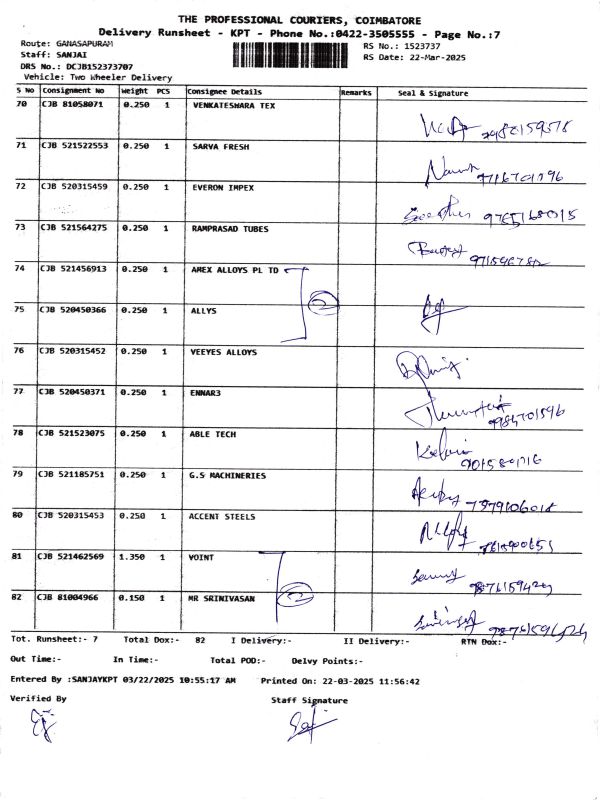 THE PROFESSIONAL COURIERS, COIMBATORE
Delivery Runsheet - KPT - Phone No.:0422-3505555 - Page No.:7
Route: GANASAPURAM
RS No.: 1523737
Staff: SANJAI
RS Date: 22-Mar-2025
DRS No.: DCJB152373707
Vehicle: Two Wheeler Delivery
S No Consignment No Weight PCS Consignee Details Remarks Seal & Signature
70 CJB 81058071 0.250 1 VENKATESHARA TEX
71 CJB 521522553 0.250 1 SARVA FRESH
72 CJB 520315459 0.250 1 EVERON IMPEX
73 CJB 521564275 0.250 1 RAMPRASAD TUBES
74 CJB 521456913 0.250 1 AMEX ALLOYS PL TD
2
75 CJB 520450366 0.250 1 ALLYS
76 CJB 520315452 0.250 1 VEEYES ALLOYS
77 CJB 520450371 0.250 1 ENNAR3
78 CJB 521523075 0.250 1 ABLE TECH
79 CJB 521185751 0.250 1 G.S MACHINERIES
80 CJB 520315453 0.250 1 ACCENT STEELS
81 CJB 521462569 1.350 1 VOINT
82 CJB 81004966 0.150 1 MR SRINIVASAN
2
Tot. Runsheet:- 7 Total Dox:- 82 I Delivery:- II Delivery:- RTN Dox:-
Out Time:- In Time:- Total POD:- Delvy Points:-
Entered By :SANJAYKPT 03/22/2025 10:55:17 AM Printed On: 22-03-2025 11:56:42
Verified By Staff Signature